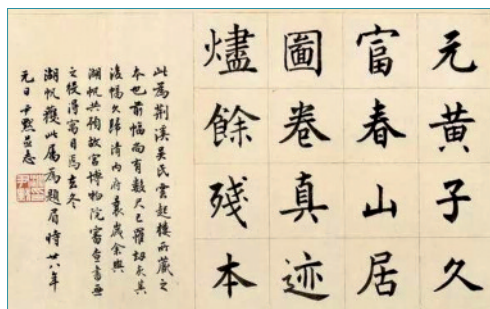 元黃子久
富春山居
圖卷真迹
燼餘殘本
此為荊溪吳氏雲起樓所藏之
本也前幅尚有數尺已罹劫灰其
後幅久歸清内府曩歲余與
湖帆共預故宮博物院審查書畫
之役得寓目焉玄冬
湖帆獲此屬為題眉時廿八年
元日尹默並志